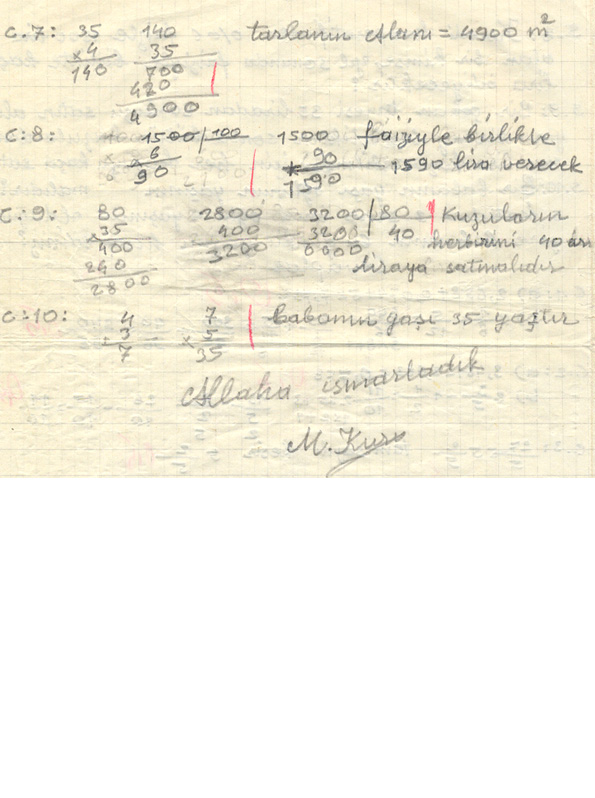 C.7: 35 140 tarlanın Alanı = 4900 m²
x 4 35
140 700
420
4900
C:8: 1500 / 100 1500 faiziyle birlikte
x 6 90 1590 lira verecek
90 1590
C:9: 80 2800 3200 / 80 Kuzuların
x 35 400 3200 40 herbirini 40 ar
400 3200 0000
240 liraya satmalıdır
2800
C:10: 4 7 babamın yaşı 35 yaştır
+ 3 x 5
7 35
Allaha ısmarladık
M. Kuru